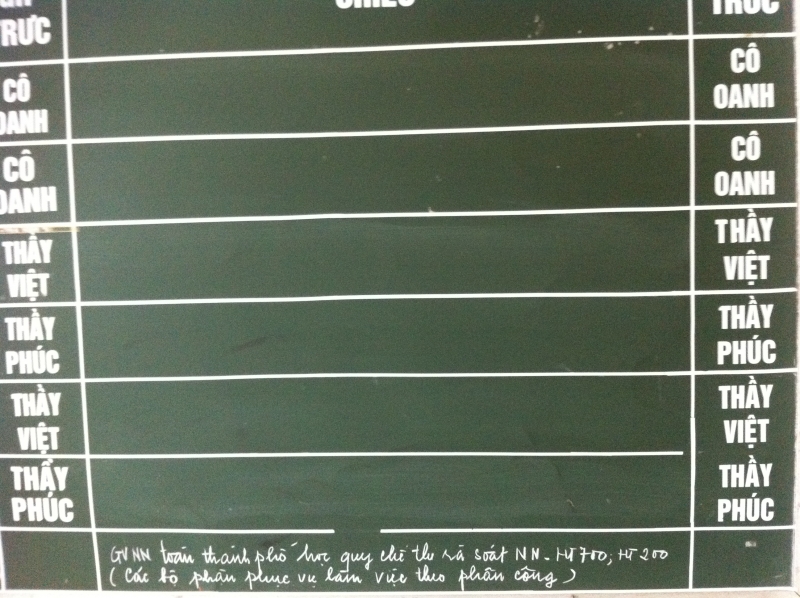 TRỰC
CHIỀU
TRỰC
CÔ
OANH
CÔ
OANH
CÔ
OANH
CÔ
OANH
THẦY
VIỆT
THẦY
VIỆT
THẦY
PHÚC
THẦY
PHÚC
THẦY
VIỆT
THẦY
VIỆT
THẦY
PHÚC
THẦY
PHÚC
GVNN toàn thành phố học quy chế thi rà soát NN - HT 700; HT 200
(Các bộ phận phục vụ làm việc theo phân công)